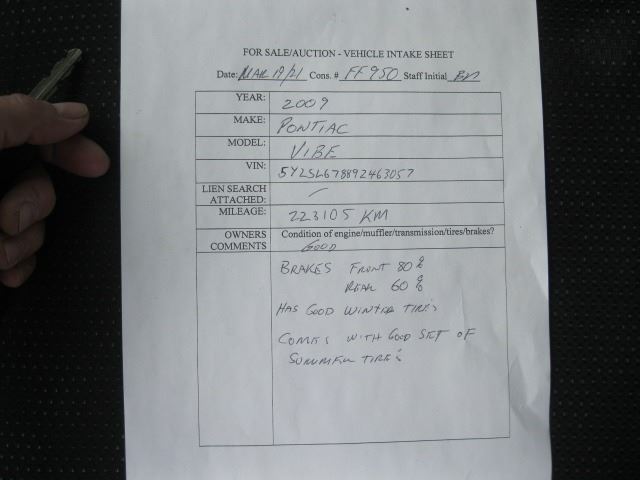 FOR SALE/AUCTION - VEHICLE INTAKE SHEET
Date: MAR 19/21 Cons. # FF950 Staff Initial
YEAR: 2009
MAKE: PONTIAC
MODEL: VIBE
VIN: 5Y2SL67889Z463057
LIEN SEARCH
ATTACHED:
MILEAGE: 223105 KM
OWNERS Condition of engine/muffler/transmission/tires/brakes?
COMMENTS GOOD
BRAKES FRONT 80%
REAR 60%
HAS GOOD WINTER TIRES
COMES WITH GOOD SET OF
SUMMER TIRES